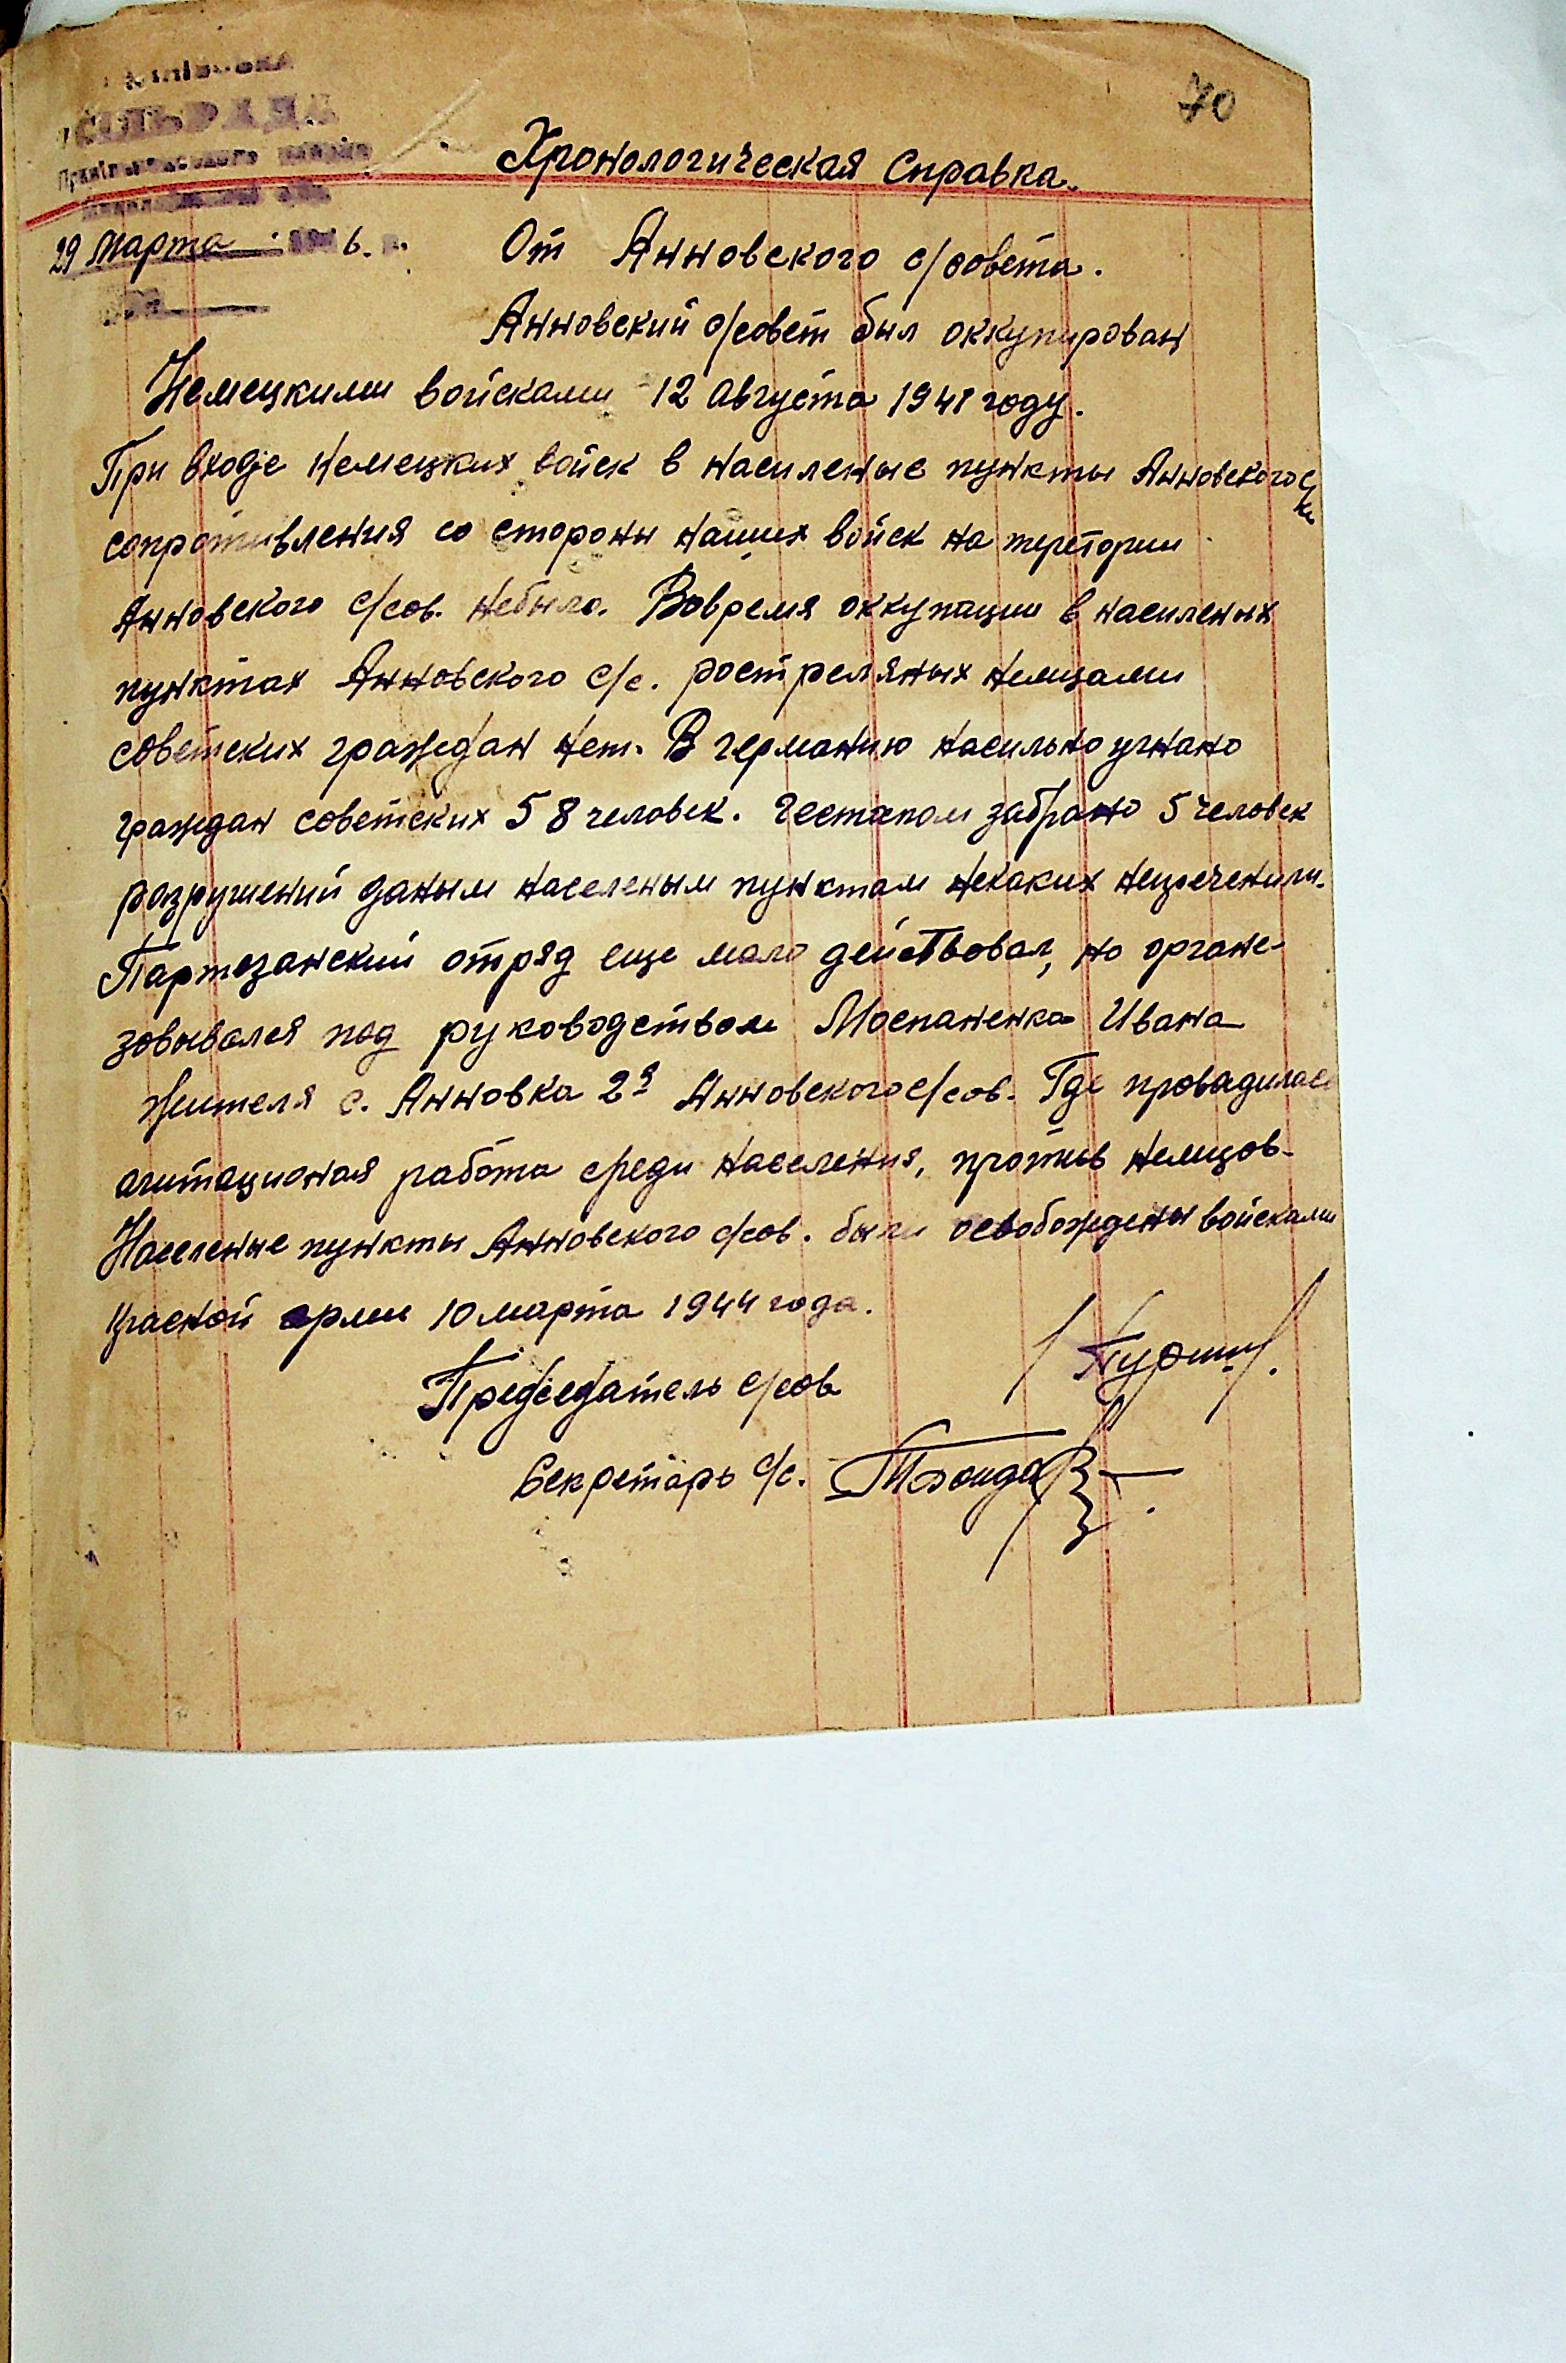 70
СІЛЬРАДА
Хронологическая справка.
29 марта 6. р.
От Анновского с/совета.
Анновский с/совет был оккупирован
Немецкими войсками 12 августа 1941 году.
При входе Немецких войск в насиленые пункты Анновского с/с
сопротивления со стороны наших войск на теретории
Анновского с/сов. небыло. Вовремя оккупации в насиленых
пунктах Анновского с/с. ростреляных немцами
советских граждан нет. В германию насильно угнано
граждан советских 58 человек. Гестапом забрано 5 человек
разрушений даным населеным пунктам некаких
Партезанский отряд еще мало действовал, но органе-
зовывался под руководством Моспаненка Ивана
жителя с. Анновка 2я Анновского с/сов. Где провадилась
агитационая работа среди населения, против немцов.
Населеные пункты Анновского с/сов. были освобождены войсками
Красной армии 10 марта 1944 года.
Председатель с/сов
Секретарь с/с.